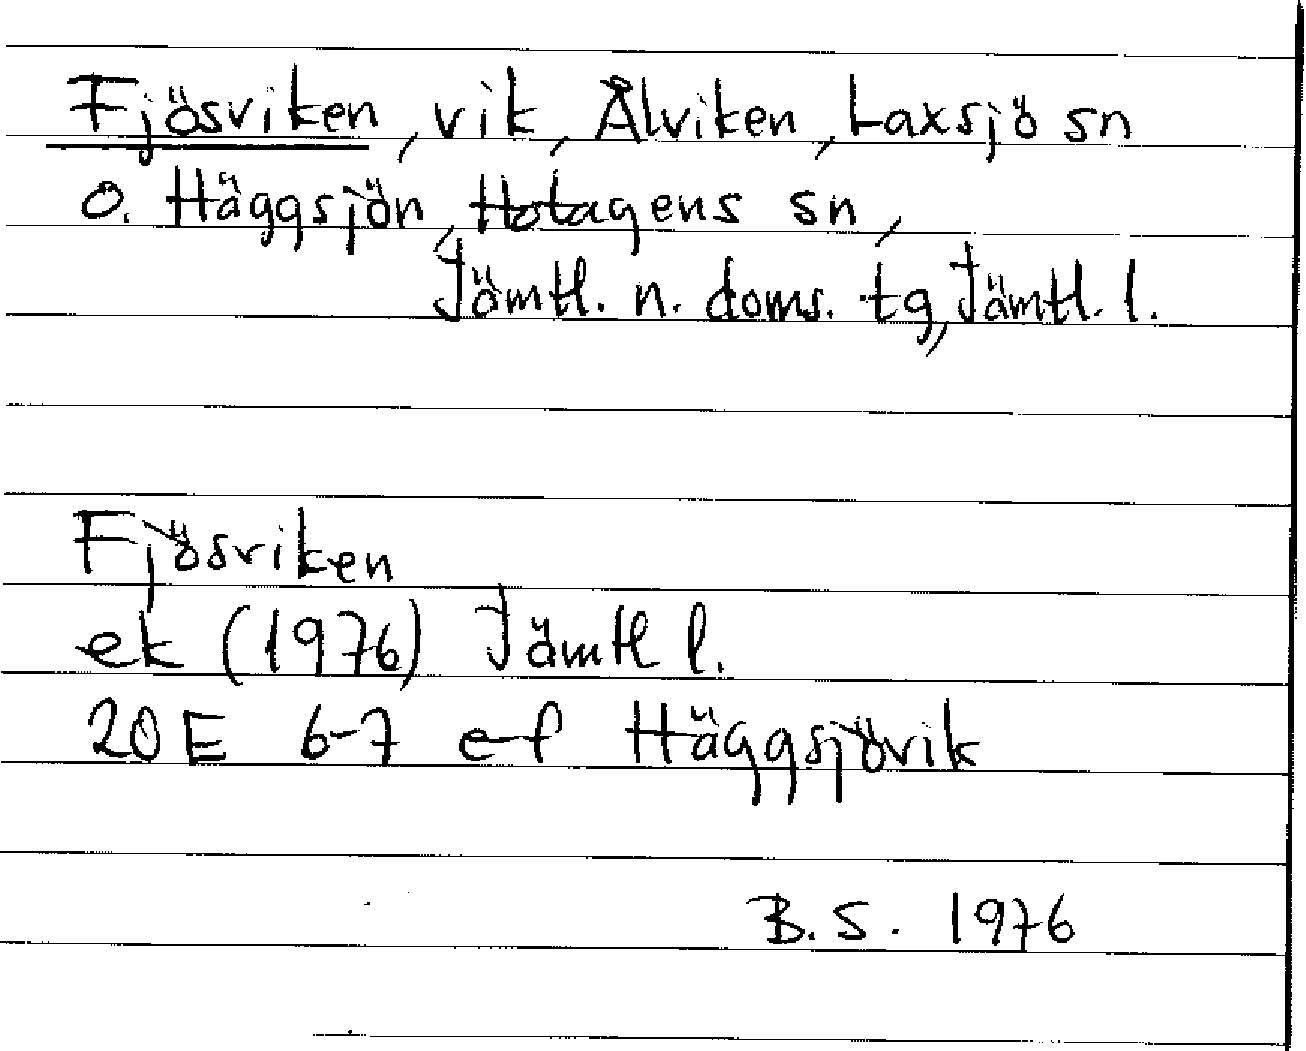 Fjösviken, vik, Ålviken, Laxsjö sn
o. Häggsjön, Hotagens sn,
Jämtl. n. doms. tg, Jämtl. l.
Fjösviken
ek (1976) Jämtl l.
20E 6-7 e-f Häggsjövik
B.S. 1976